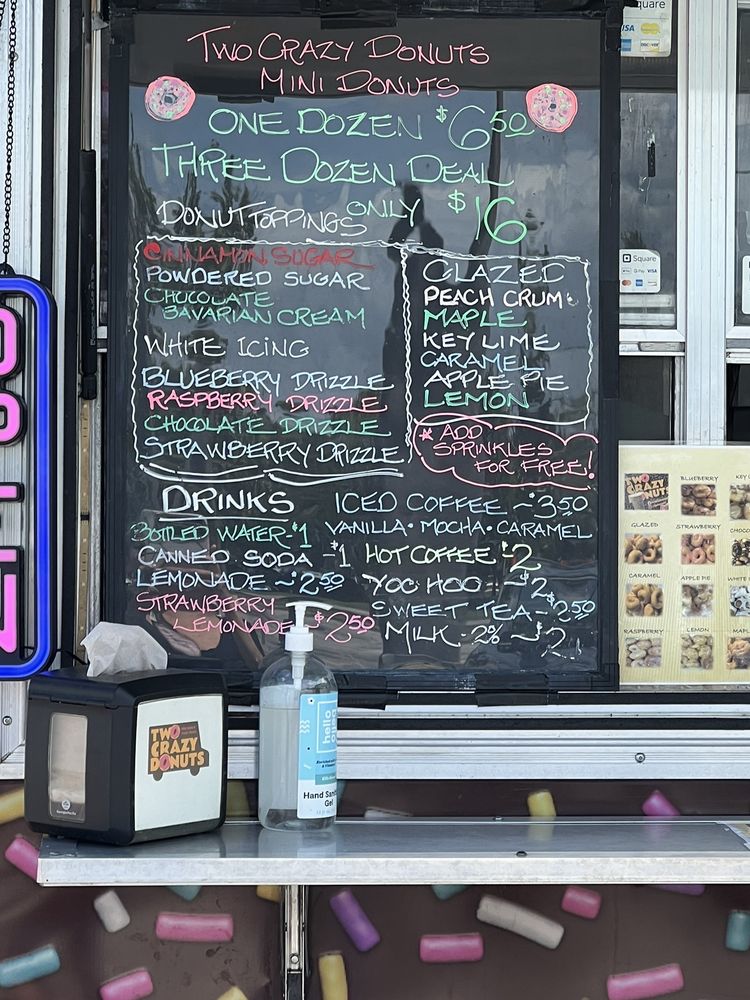 TWO CRAZY DONUTS
MINI DONUTS
ONE DOZEN $6.50
THREE DOZEN DEAL
ONLY $16
DONUT TOPPINGS
CINNAMON SUGAR
POWDERED SUGAR
CHOCOLATE
BAVARIAN CREAM
WHITE ICING
BLUEBERRY DRIZZLE
RASPBERRY DRIZZLE
CHOCOLATE DRIZZLE
STRAWBERRY DRIZZLE
GLAZED
PEACH CRUMB
MAPLE
KEY LIME
CARAMEL
APPLE PIE
LEMON
* ADD
SPRINKLES
FOR FREE!
DRINKS
BOTTLED WATER-$1
CANNED SODA -$1
LEMONADE ~$2.50
STRAWBERRY
LEMONADE $2.50
ICED COFFEE ~$3.50
VANILLA • MOCHA • CARAMEL
HOT COFFEE $2
YOO HOO ~$2
SWEET TEA ~$2.50
MILK-2% ~$2
Square
VISA
DISCOVER
Square
G Pay VISA
TWO
CRAZY
DONUTS
BLUEBERRY
KEY
GLAZED
STRAWBERRY
CHOCO
CARAMEL
APPLE PIE
WHITE
RASPBERRY
LEMON
MAP
TWO
CRAZY
DONUTS
hello
bello
Hand Sani
Gel